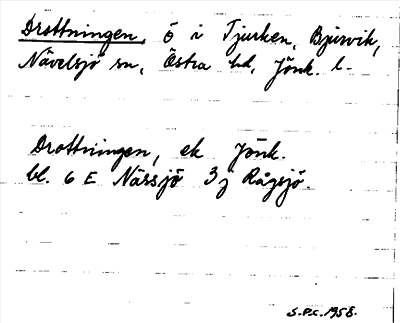 Drottningen, ö i Tjurken, Bjurvik,
Nävelsjö sn, Östra hd, Jönk. l-
Drottningen, ek Jönk.
bl. 6 E Nässjö 3 j Rågsjö.
S.P.C. 1958.